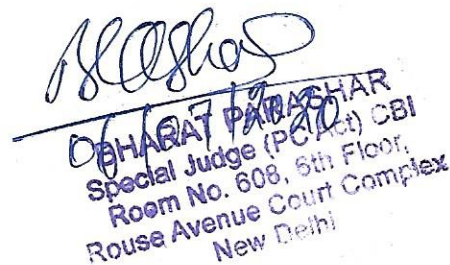 06/07/2020
BHARAT PARASHAR
Special Judge (PC Act) CBI
Room No. 608, 6th Floor,
Rouse Avenue Court Complex
New Delhi